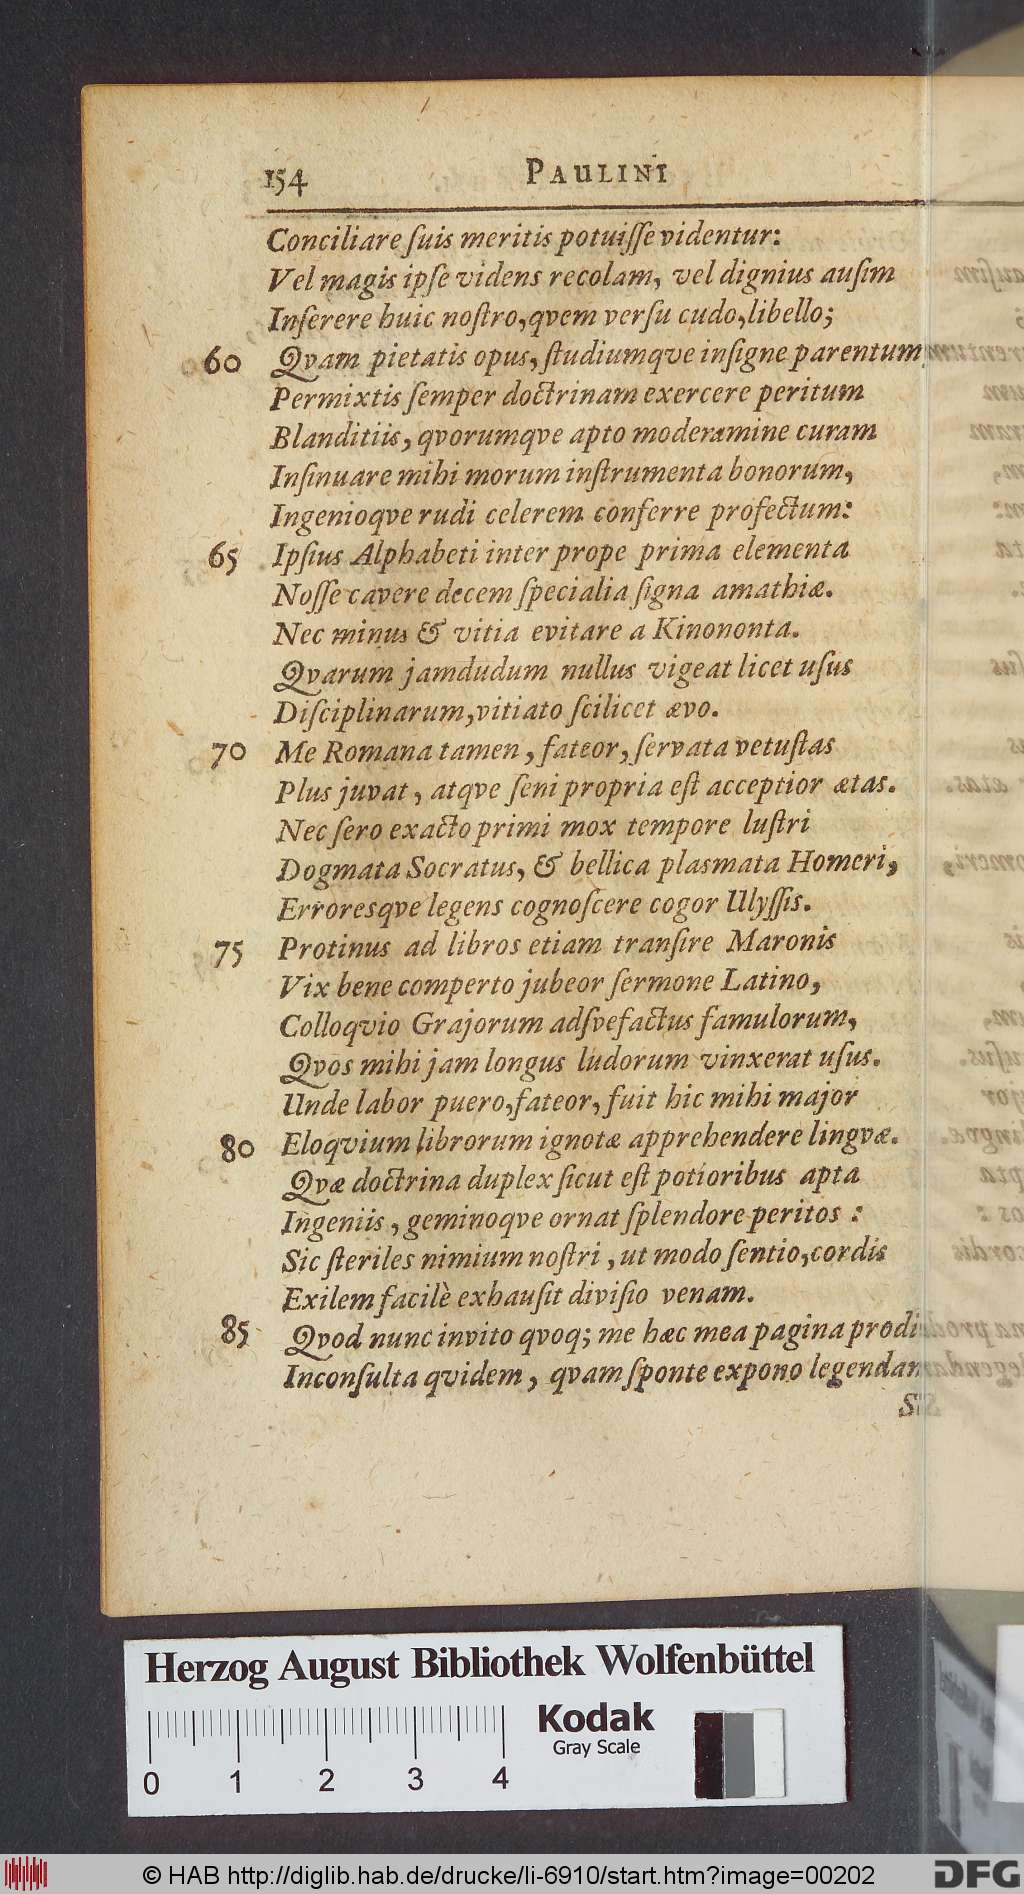 154 PAULINI
Conciliare ſuis meritis potuiſſe videntur:
Vel magis ipſe videns recolam, vel dignius auſim
Inſerere huic noſtro, qvem verſu cudo, libello;
60 Qvam pietatis opus, ſtudiumqve inſigne parentum
Permixtis ſemper doctrinam exercere peritum
Blanditiis, qvorumqve apto moderamine curam
Inſinuare mihi morum inſtrumenta bonorum,
Ingenioqve rudi celerem conferre profectum:
65 Ipſius Alphabeti inter prope prima elementa
Noſſe cavere decem ſpecialia ſigna amathiæ.
Nec minus & vitia evitare a Kinononta.
Qvarum jamdudum nullus vigeat licet uſus
Diſciplinarum, vitiato ſcilicet ævo.
70 Me Romana tamen, fateor, ſervata vetuſtas
Plus juvat, atqve ſeni propria eſt acceptior ætas.
Nec ſero exacto primi mox tempore luſtri
Dogmata Socratus, & bellica plasmata Homeri,
Erroresqve legens cognoſcere cogor Ulyſſis.
75 Protinus ad libros etiam tranſire Maronis
Vix bene comperto jubeor ſermone Latino,
Colloqvio Grajorum adſvefactus famulorum,
Qvos mihi jam longus ludorum vinxerat uſus.
Unde labor puero, fateor, fuit hic mihi major
80 Eloqvium librorum ignotæ apprehendere lingvæ.
Qvæ doctrina duplex ſicut eſt potioribus apta
Ingeniis, geminoqve ornat ſplendore peritos:
Sic ſteriles nimium noſtri, ut modo ſentio, cordis
Exilem facilè exhauſit diviſio venam.
85 Qvod nunc invito qvoq; me hæc mea pagina prodi
Inconſulta qvidem, qvam ſponte expono legendam
Herzog August Bibliothek Wolfenbüttel
Kodak
Gray Scale
0 1 2 3 4
© HAB http://diglib.hab.de/drucke/li-6910/start.htm?image=00202
DFG